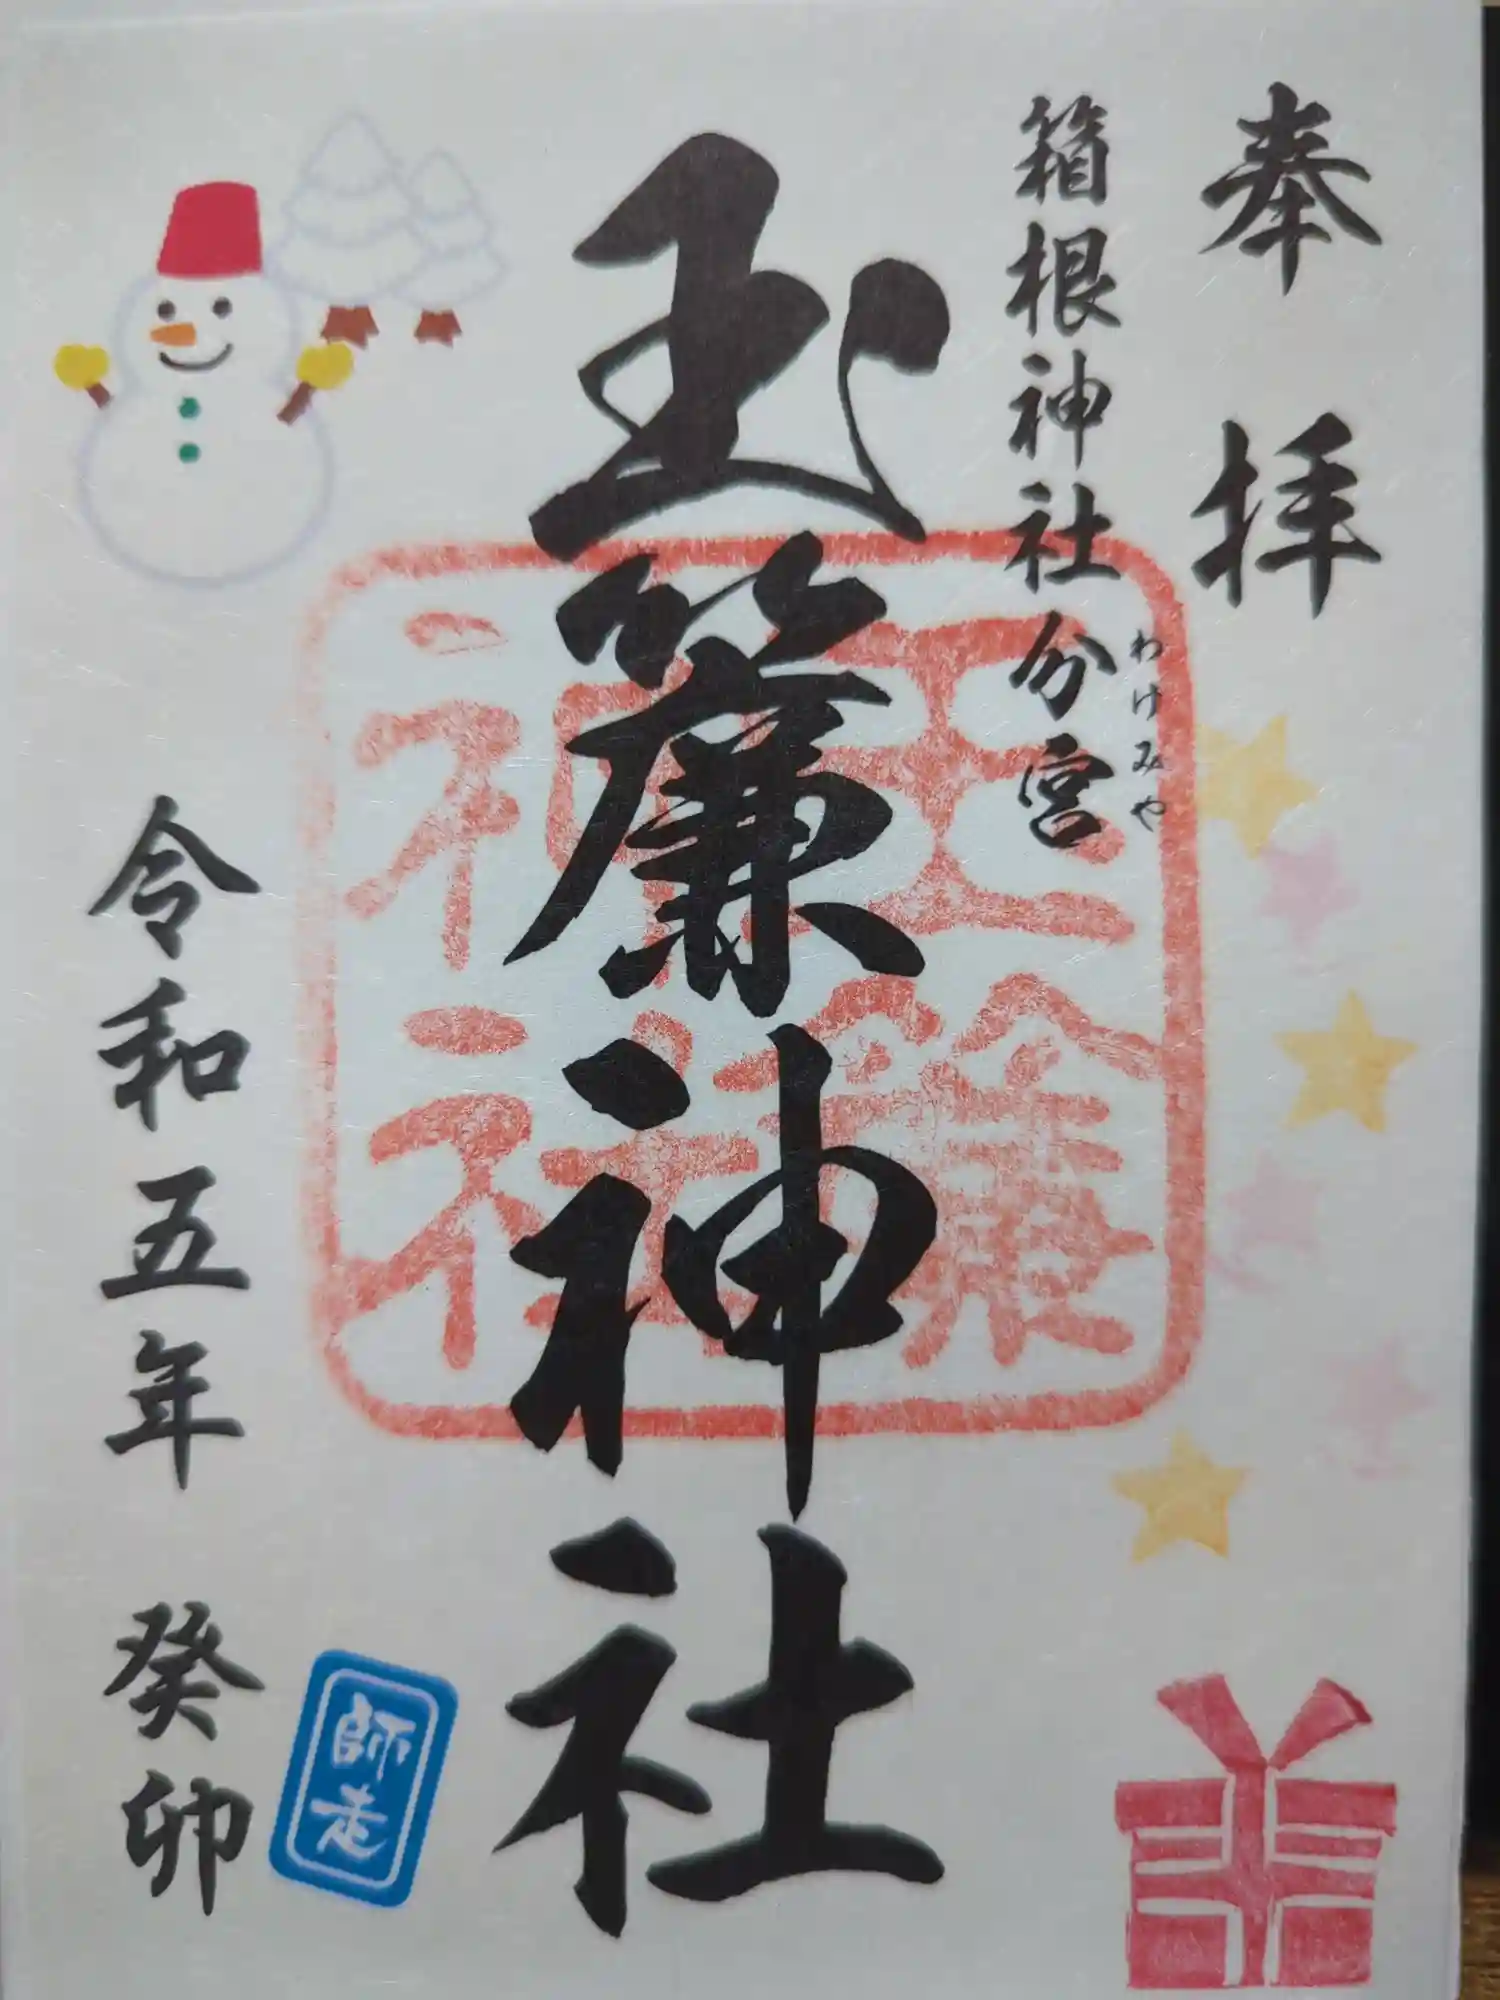 奉拝
箱根神社分宮
わけみや
玉簾神社
玉簾神社
令和五年 癸卯
師走